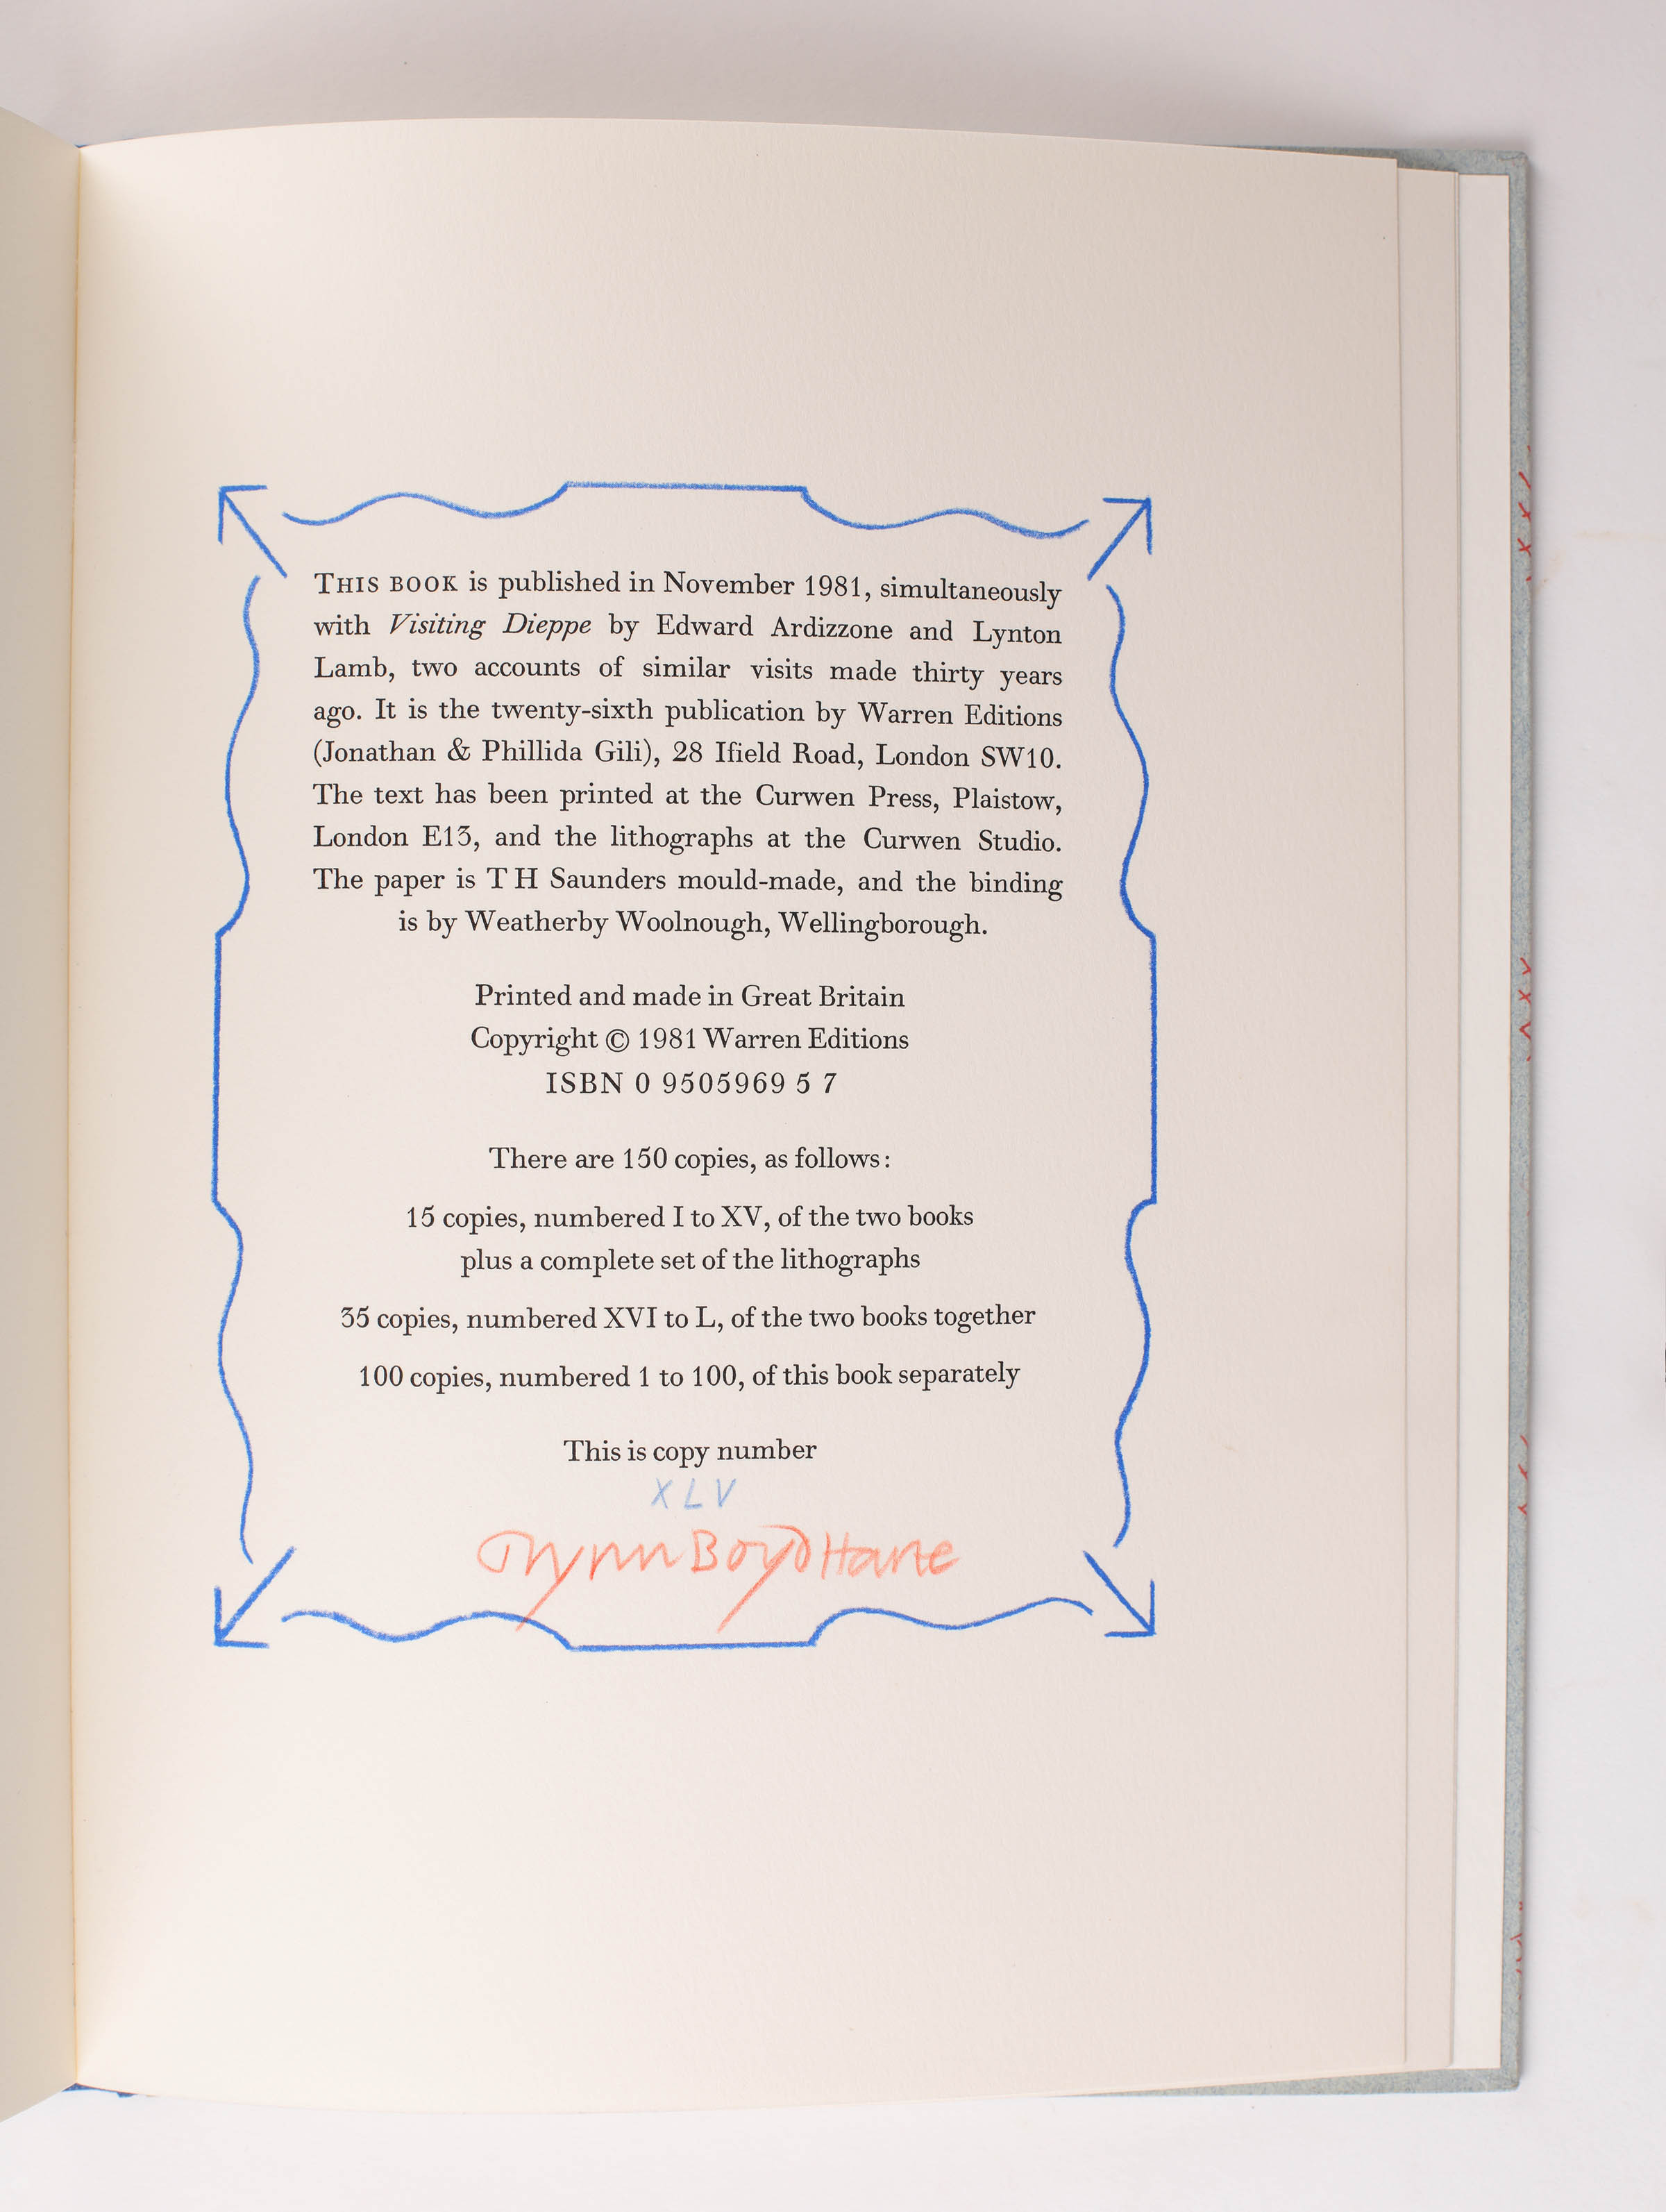 THIS BOOK is published in November 1981, simultaneously
with Visiting Dieppe by Edward Ardizzone and Lynton
Lamb, two accounts of similar visits made thirty years
ago. It is the twenty-sixth publication by Warren Editions
(Jonathan & Phillida Gili), 28 Ifield Road, London SW10.
The text has been printed at the Curwen Press, Plaistow,
London E13, and the lithographs at the Curwen Studio.
The paper is T H Saunders mould-made, and the binding
is by Weatherby Woolnough, Wellingborough.
Printed and made in Great Britain
Copyright © 1981 Warren Editions
ISBN 0 9505969 5 7
There are 150 copies, as follows:
15 copies, numbered I to XV, of the two books
plus a complete set of the lithographs
35 copies, numbered XVI to L, of the two books together
100 copies, numbered 1 to 100, of this book separately
This is copy number
XLV
Glynn Boyd Harte